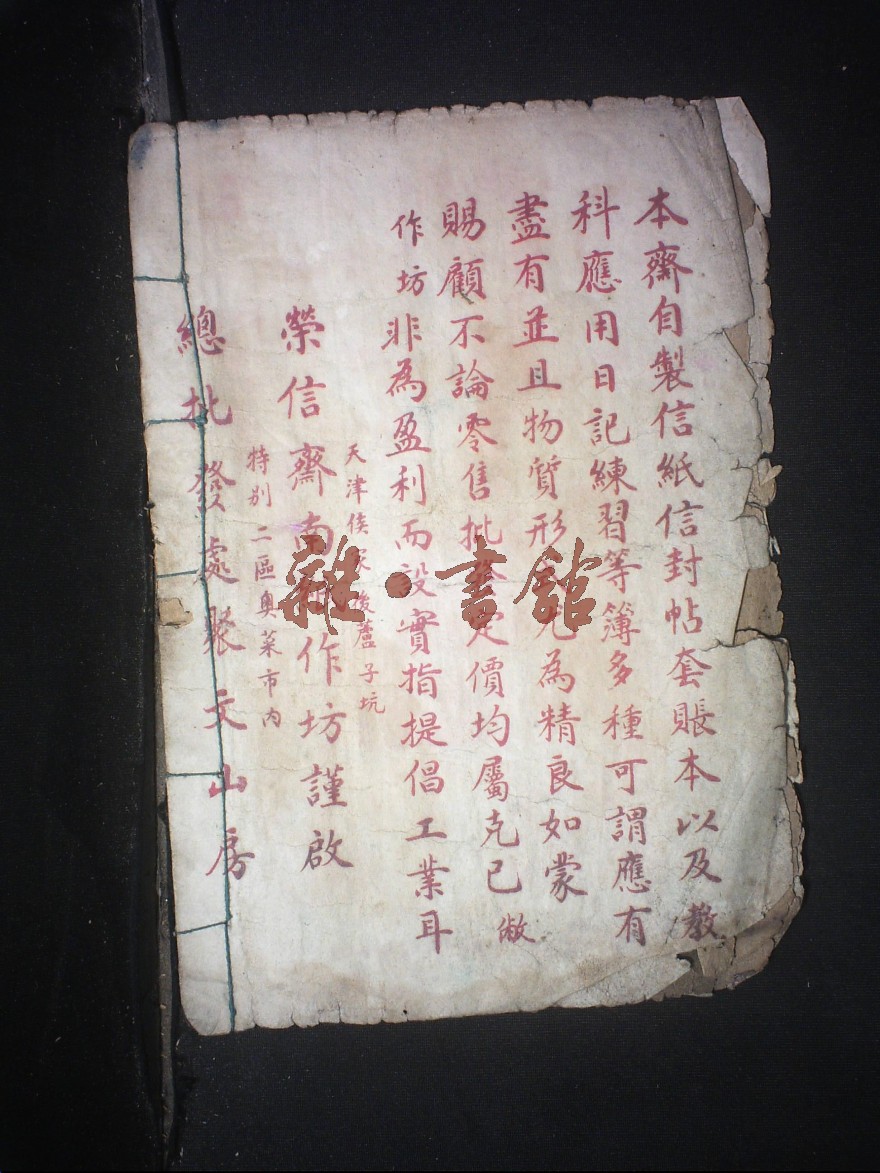 本齋自製信紙信封帖套賬本以及教
科應用日記練習等簿多種可謂應有
盡有並且物質形為精良如蒙
賜顧不論零售批定價均屬克己敝
作坊非為盈利而設實指提倡工業耳
天津侯家後蘆子坑
榮信齋南作坊謹啟
特別二區奧菜市內
總批發處聚文山房
雜·書館